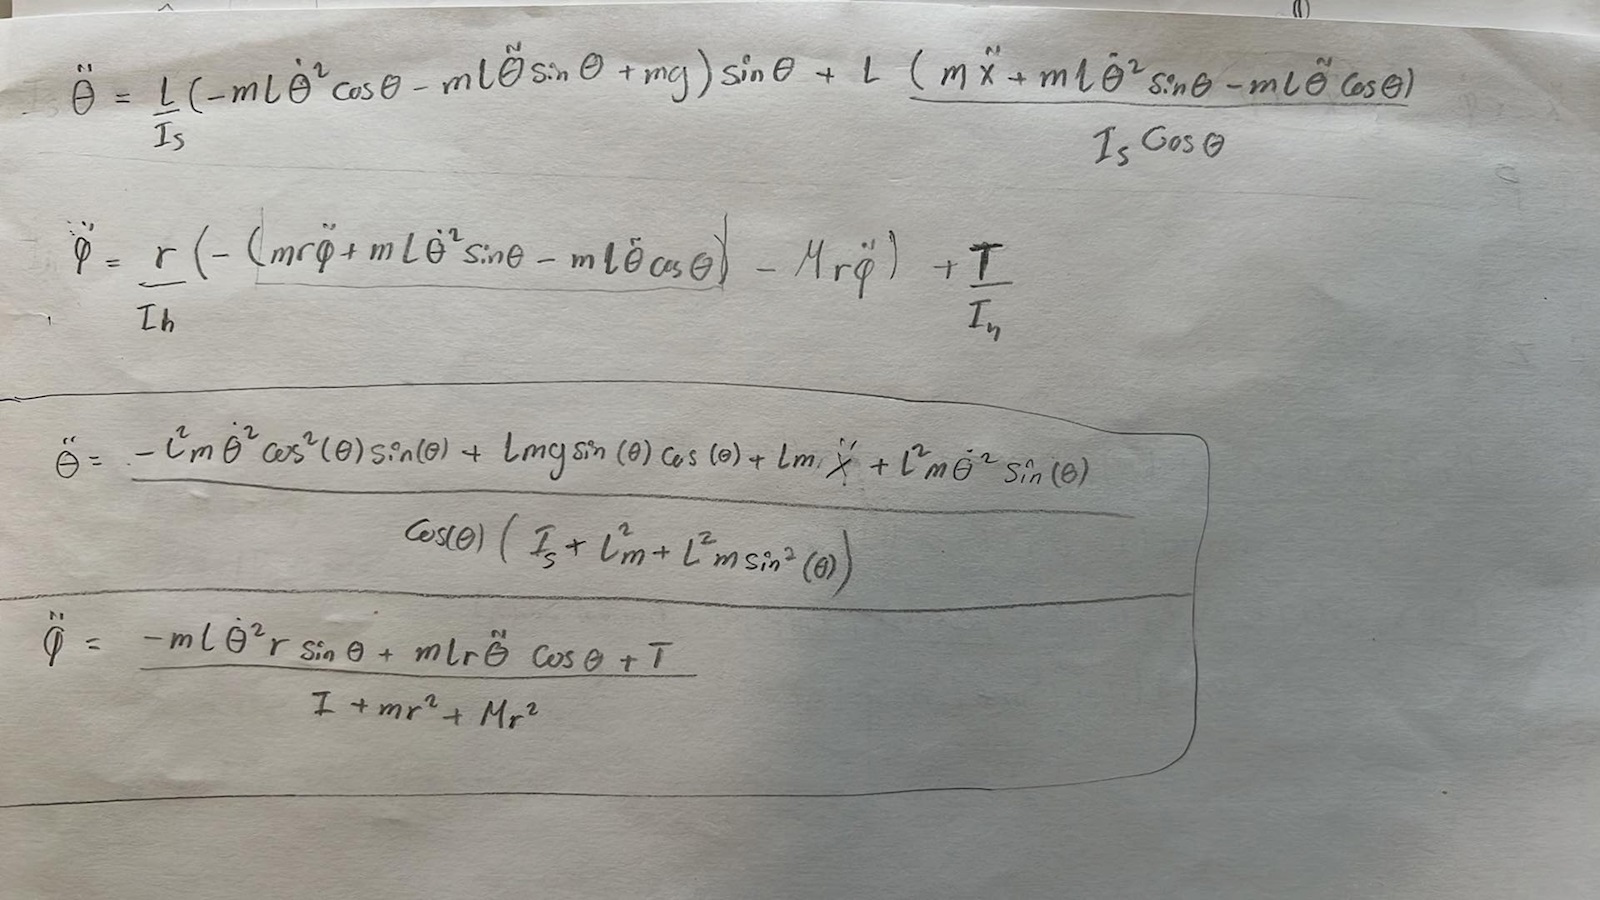 θ̈ = L/Is (-mLθ̇² cosθ - mlθ̈ sinθ + mg) sinθ + L (mẍ + mlθ̇² sinθ - mlθ̈ cosθ) / Is Cosθ
φ̈ = r/Ih (-(mrφ̈ + mlθ̇² sinθ - mlθ̈ cosθ) - Mrφ̈) + T/Ih
θ̈ = -L²mθ̇² cos²(θ) sin(θ) + Lmg sin(θ) cos(θ) + Lmẍ + L²mθ̇² sin(θ) / Cos(θ) (Is + L²m + L²m sin²(θ))
φ̈ = -mlθ̇² r sinθ + mlrθ̈ Cosθ + T / I + mr² + Mr²